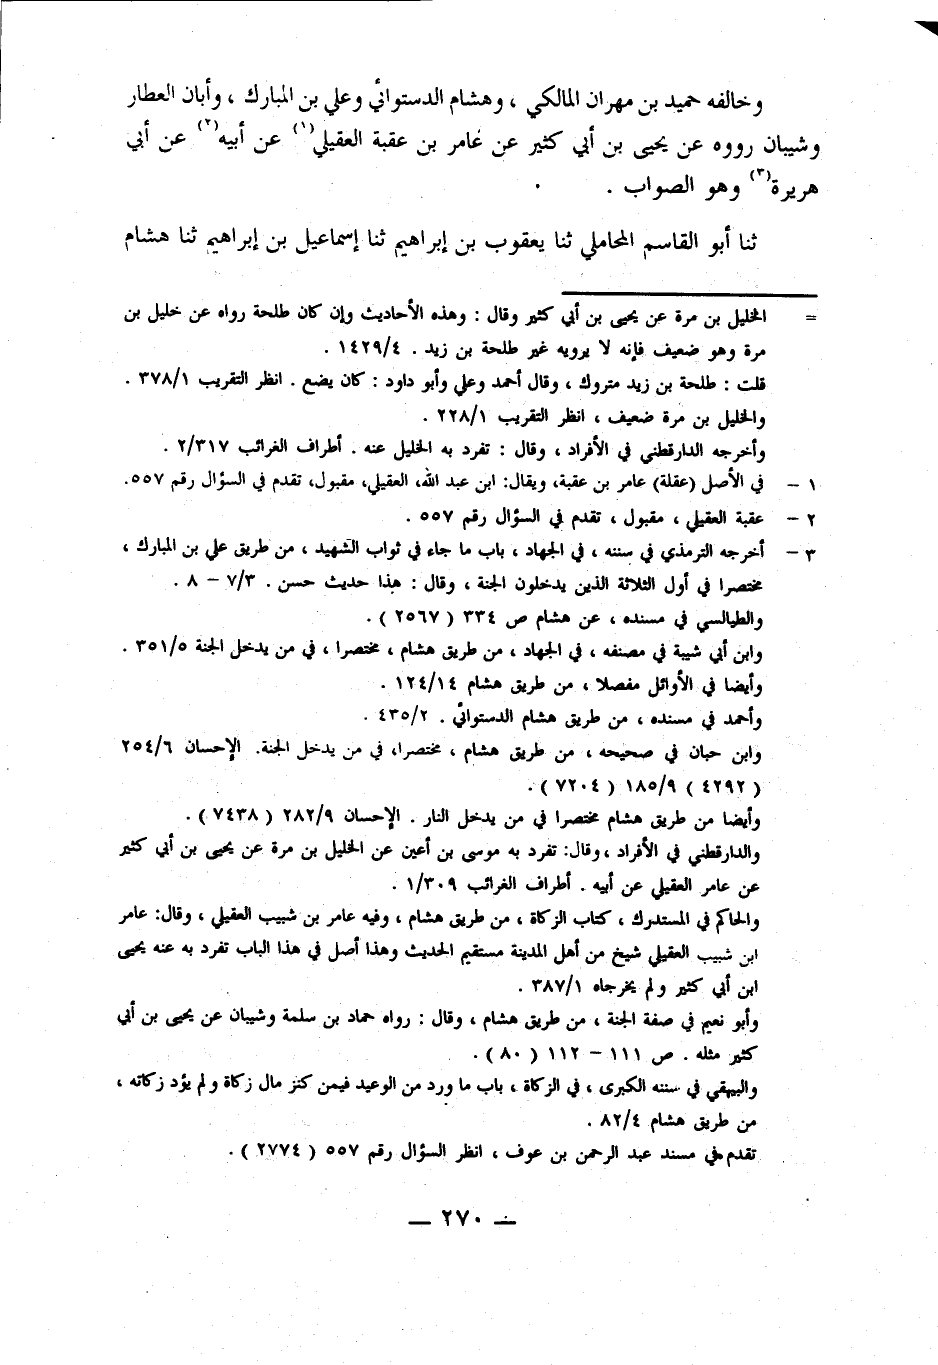 وخالفه حميد بن مهران المالكي ، وهشام الدستوائي وعلي بن المبارك ، وأبان العطار
وشيبان رووه عن يحيى بن أبي كثير عن عامر بن عقبة العقيلي(١) عن أبيه(٢) عن أبي
هريرة(٣) وهو الصواب .
ثنا أبو القاسم المحاملي ثنا يعقوب بن إبراهيم ثنا إسماعيل بن إبراهيم ثنا هشام
= الخليل بن مرة عن يحيى بن أبي كثير وقال : وهذه الأحاديث وإن كان طلحة رواه عن خليل بن
مرة وهو ضعيف فإنه لا يرويه غير طلحة بن زيد . ١٤٢٩/٤ .
قلت : طلحة بن زيد متروك ، وقال أحمد وعلي وأبو داود : كان يضع . انظر التقريب ٣٧٨/١ .
والخليل بن مرة ضعيف ، انظر التقريب ٢٢٨/١ .
وأخرجه الدارقطني في الأفراد ، وقال : تفرد به الخليل عنه . أطراف الغرائب ٢/٣١٧ .
١ – في الأصل (عقلة) عامر بن عقبة، ويقال: ابن عبد الله، العقيلي، مقبول، تقدم في السؤال رقم ٥٥٧.
٢ – عقبة العقيلي ، مقبول ، تقدم في السؤال رقم ٥٥٧ .
٣ – أخرجه الترمذي في سننه ، في الجهاد ، باب ما جاء في ثواب الشهيد ، من طريق علي بن المبارك ،
مختصرا في أول الثلاثة الذين يدخلون الجنة ، وقال : هذا حديث حسن . ٧/٣ – ٨ .
والطيالسي في مسنده ، عن هشام ص ٣٣٤ ( ٢٥٦٧ ) .
وابن أبي شيبة في مصنفه ، في الجهاد ، من طريق هشام ، مختصرا ، في من يدخل الجنة ٣٥١/٥ .
وأيضا في الأوائل مفصلا ، من طريق هشام ١٢٤/١٤ .
وأحمد في مسنده ، من طريق هشام الدستوائي . ٤٣٥/٢ .
وابن حبان في صحيحه ، من طريق هشام ، مختصرا، في من يدخل الجنة. الإحسان ٢٥٤/٦
( ٤٢٩٢ ) ١٨٥/٩ ( ٧٢٠٤ ) .
وأيضا من طريق هشام مختصرا في من يدخل النار . الإحسان ٢٨٢/٩ ( ٧٤٣٨ ) .
والدارقطني في الأفراد ، وقال: تفرد به موسى بن أعين عن الخليل بن مرة عن يحيى بن أبي كثير
عن عامر العقيلي عن أبيه . أطراف الغرائب ١/٣٠٩ .
والحاكم في المستدرك ، كتاب الزكاة ، من طريق هشام ، وفيه عامر بن شبيب العقيلي ، وقال: عامر
ابن شبيب العقيلي شيخ من أهل المدينة مستقيم الحديث وهذا أصل في هذا الباب تفرد به عنه يحيى
ابن أبي كثير ولم يخرجاه ٣٨٧/١ .
وأبو نعيم في صفة الجنة ، من طريق هشام ، وقال : رواه حماد بن سلمة وشيبان عن يحيى بن أبي
كثير مثله . ص ١١١ – ١١٢ ( ٨٠ ) .
والبيهقي في سننه الكبرى ، في الزكاة ، باب ما ورد من الوعيد فيمن كنز مال زكاة ولم يؤد زكاته ،
من طريق هشام ٨٢/٤ .
تقدم في مسند عبد الرحمن بن عوف ، انظر السؤال رقم ٥٥٧ ( ٢٧٧٤ ) .
— ٢٧٠ —